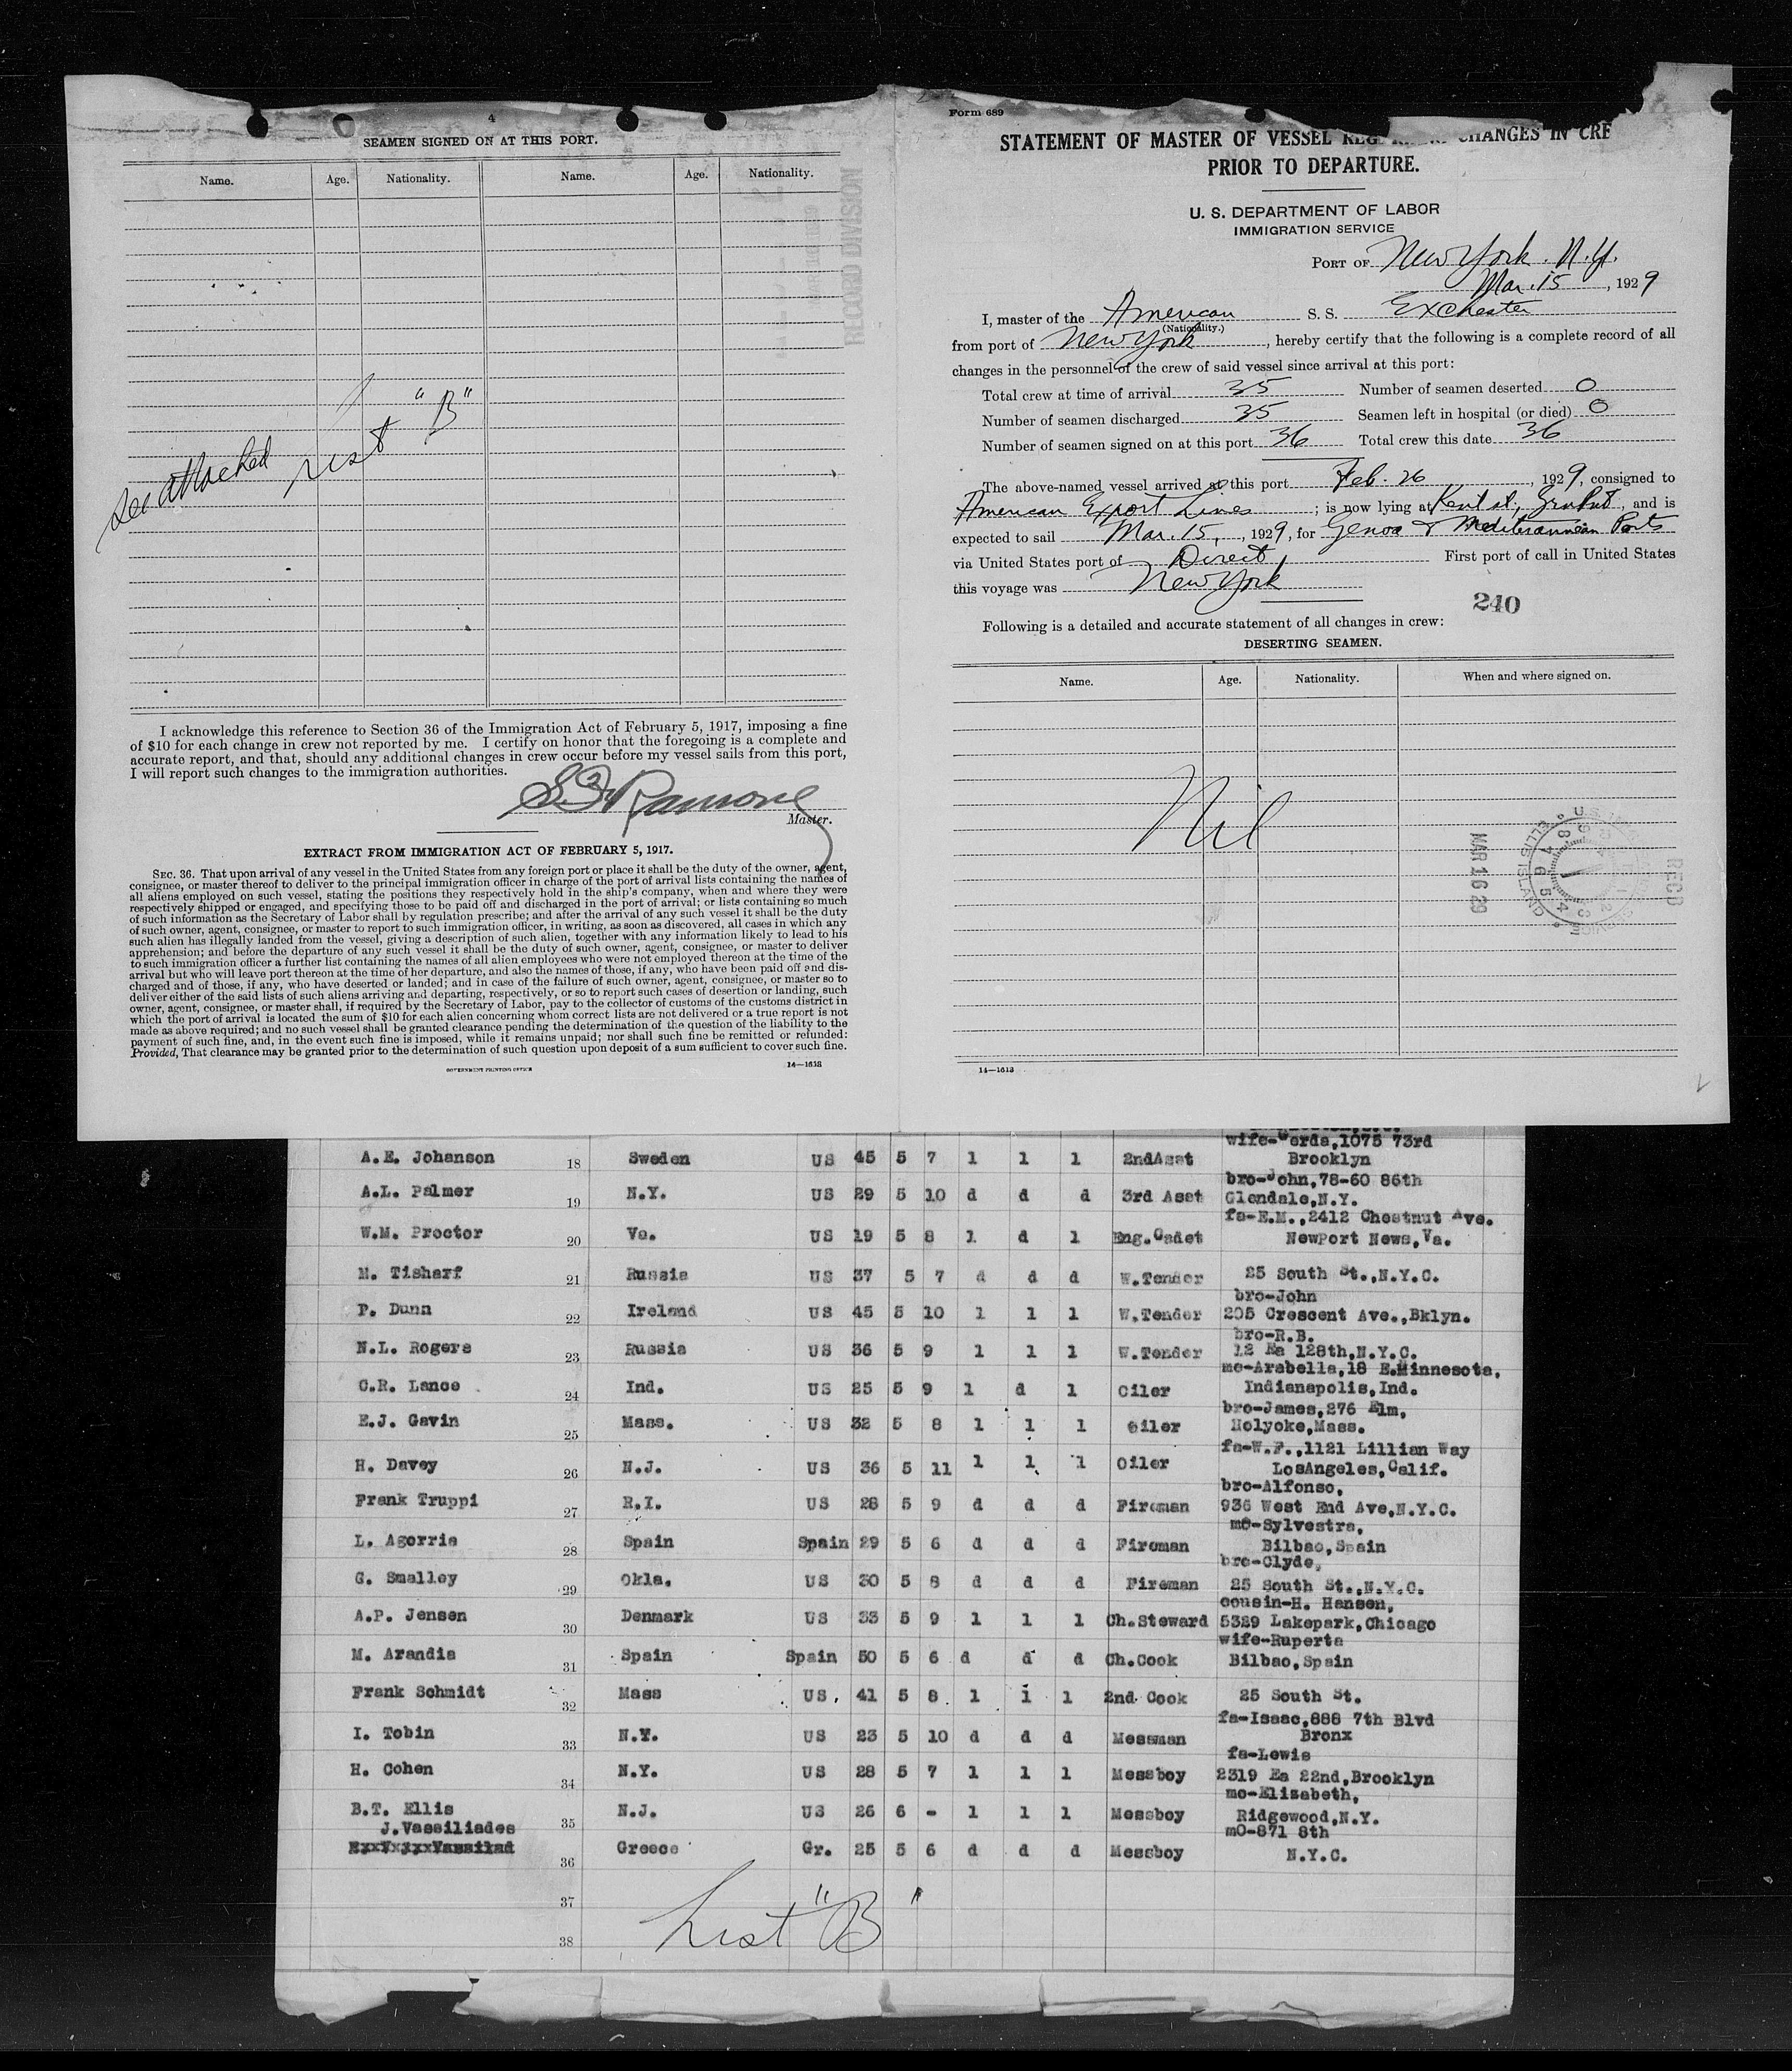 4
SEAMEN SIGNED ON AT THIS PORT.
Name. Age. Nationality. Name. Age. Nationality.
RECORD DIVISION
See attached List "B"
I acknowledge this reference to Section 36 of the Immigration Act of February 5, 1917, imposing a fine
of $10 for each change in crew not reported by me. I certify on honor that the foregoing is a complete and
accurate report, and that, should any additional changes in crew occur before my vessel sails from this port,
I will report such changes to the immigration authorities.
Master.
EXTRACT FROM IMMIGRATION ACT OF FEBRUARY 5, 1917.
SEC. 36. That upon arrival of any vessel in the United States from any foreign port or place it shall be the duty of the owner, agent,
consignee, or master thereof to deliver to the principal immigration officer in charge of the port of arrival lists containing the names of
all aliens employed on such vessel, stating the positions they respectively hold in the ship's company, when and where they were
respectively shipped or engaged, and specifying those to be paid off and discharged in the port of arrival; or lists containing so much
of such information as the Secretary of Labor shall by regulation prescribe; and after the arrival of any such vessel it shall be the duty
of such owner, agent, consignee, or master to report to such immigration officer, in writing, as soon as discovered, all cases in which any
such alien has illegally landed from the vessel, giving a description of such alien, together with any information likely to lead to his
apprehension; and before the departure of any such vessel it shall be the duty of such owner, agent, consignee, or master to deliver
to such immigration officer a further list containing the names of all alien employees who were not employed thereon at the time of the
arrival but who will leave port thereon at the time of her departure, and also the names of those, if any, who have been paid off and dis-
charged and of those, if any, who have deserted or landed; and in case of the failure of such owner, agent, consignee, or master so to
deliver either of the said lists of such aliens arriving and departing, respectively, or so to report such cases of desertion or landing, such
owner, agent, consignee, or master shall, if required by the Secretary of Labor, pay to the collector of customs of the customs district in
which the port of arrival is located the sum of $10 for each alien concerning whom correct lists are not delivered or a true report is not
made as above required; and no such vessel shall be granted clearance pending the determination of the question of the liability to the
payment of such fine, and, in the event such fine is imposed, while it remains unpaid; nor shall such fine be remitted or refunded:
Provided, That clearance may be granted prior to the determination of such question upon deposit of a sum sufficient to cover such fine.
GOVERNMENT PRINTING OFFICE 14—1613
Form 689
STATEMENT OF MASTER OF VESSEL CHANGES IN CRE
PRIOR TO DEPARTURE.
U. S. DEPARTMENT OF LABOR
IMMIGRATION SERVICE
PORT OF New York. N.Y.
Mar. 15, 1929
I, master of the American S. S. Exchester
(Nationality.)
from port of New York, hereby certify that the following is a complete record of all
changes in the personnel of the crew of said vessel since arrival at this port:
Total crew at time of arrival 35 Number of seamen deserted 0
Number of seamen discharged 35 Seamen left in hospital (or died) 0
Number of seamen signed on at this port 36 Total crew this date 36
The above-named vessel arrived at this port Feb. 26, 1929, consigned to
American Export Lines; is now lying at Kent st., , and is
expected to sail Mar. 15, 1929, for Genoa & Mediterannean Ports
via United States port of Direct First port of call in United States
this voyage was New York
240
Following is a detailed and accurate statement of all changes in crew:
DESERTING SEAMEN.
Name. Age. Nationality. When and where signed on.
Nil
MAR 16 29
ELLIS ISLAND
REC'D
14—1613
wife-Gerda,1075 73rd
A.E. Johanson 18 Sweden US 45 5 7 l l l 2ndAsst Brooklyn
bro-John,78-60 86th
A.L. Palmer 19 N.Y. US 29 5 10 d d d 3rd Asst Glendale,N.Y.
fa-E.M.,2412 Chestnut Ave.
W.M. Proctor 20 Va. US 19 5 8 l d l Eng.Cadet NewPort News,Va.
M. Tisharf 21 Russia US 37 5 7 d d d W.Tender 25 South St.,N.Y.C.
bro-John
P. Dunn 22 Ireland US 45 5 10 l l l W.Tender 205 Crescent Ave.,Bklyn.
bro-R.B.
N.L. Rogers 23 Russia US 36 5 9 l l l W.Tender 12 Ea 128th,N.Y.C.
mo-Arabella,18 E.Minnesota,
C.R. Lance 24 Ind. US 25 5 9 l d l Oiler Indianapolis,Ind.
bro-James,276 Elm,
E.J. Gavin 25 Mass. US 32 5 8 l l l oiler Holyoke,Mass.
fa-W.F.,1121 Lillian Way
H. Davey 26 N.J. US 36 5 11 l l l Oiler LosAngeles,Calif.
bro-Alfonso,
Frank Truppi 27 R.I. US 28 5 9 d d d Fireman 936 West End Ave,N.Y.C.
mo-Sylvestra,
L. Agorria 28 Spain Spain 29 5 6 d d d Fireman Bilbao,Spain
bro-Clyde,
G. Smalley 29 Okla. US 30 5 8 d d d Fireman 25 South St.,N.Y.C.
cousin-H. Hansen,
A.P. Jensen 30 Denmark US 33 5 9 l l l Ch.Steward 5329 Lakepark,Chicago
wife-Ruperta
M. Arandia 31 Spain Spain 50 5 6 d d d Ch.Cook Bilbao,Spain
Frank Schmidt 32 Mass US. 41 5 8 l l l 2nd Cook 25 South St.
fa-Isaac,888 7th Blvd
I. Tobin 33 N.Y. US 23 5 10 d d d Messman Bronx
fa-Lewis
H. Cohen 34 N.Y. US 28 5 7 l l l Messboy 2319 Ea 22nd,Brooklyn
mo-Elizabeth,
B.T. Ellis 35 N.J. US 26 6 - l l l Messboy Ridgewood,N.Y.
J.Vassiliades mO-871 8th
36 Greece Gr. 25 5 6 d d d Messboy N.Y.C.
37
List "B"
38